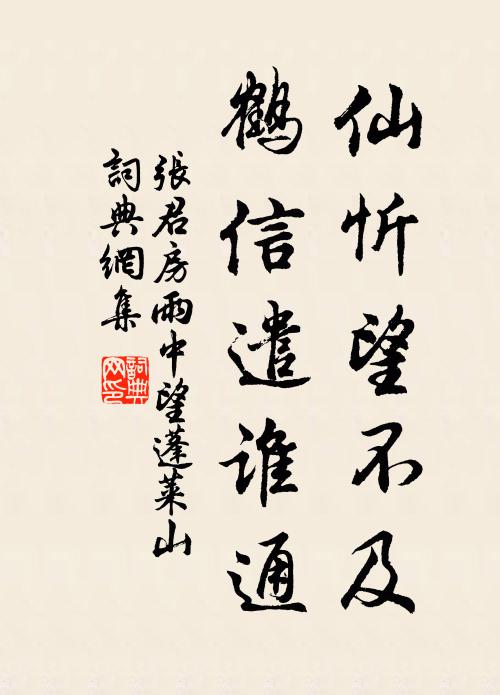 仙忻望不及
鶴信遣誰通
張君房雨中望蓬萊山
詞典網集
詞典
网印